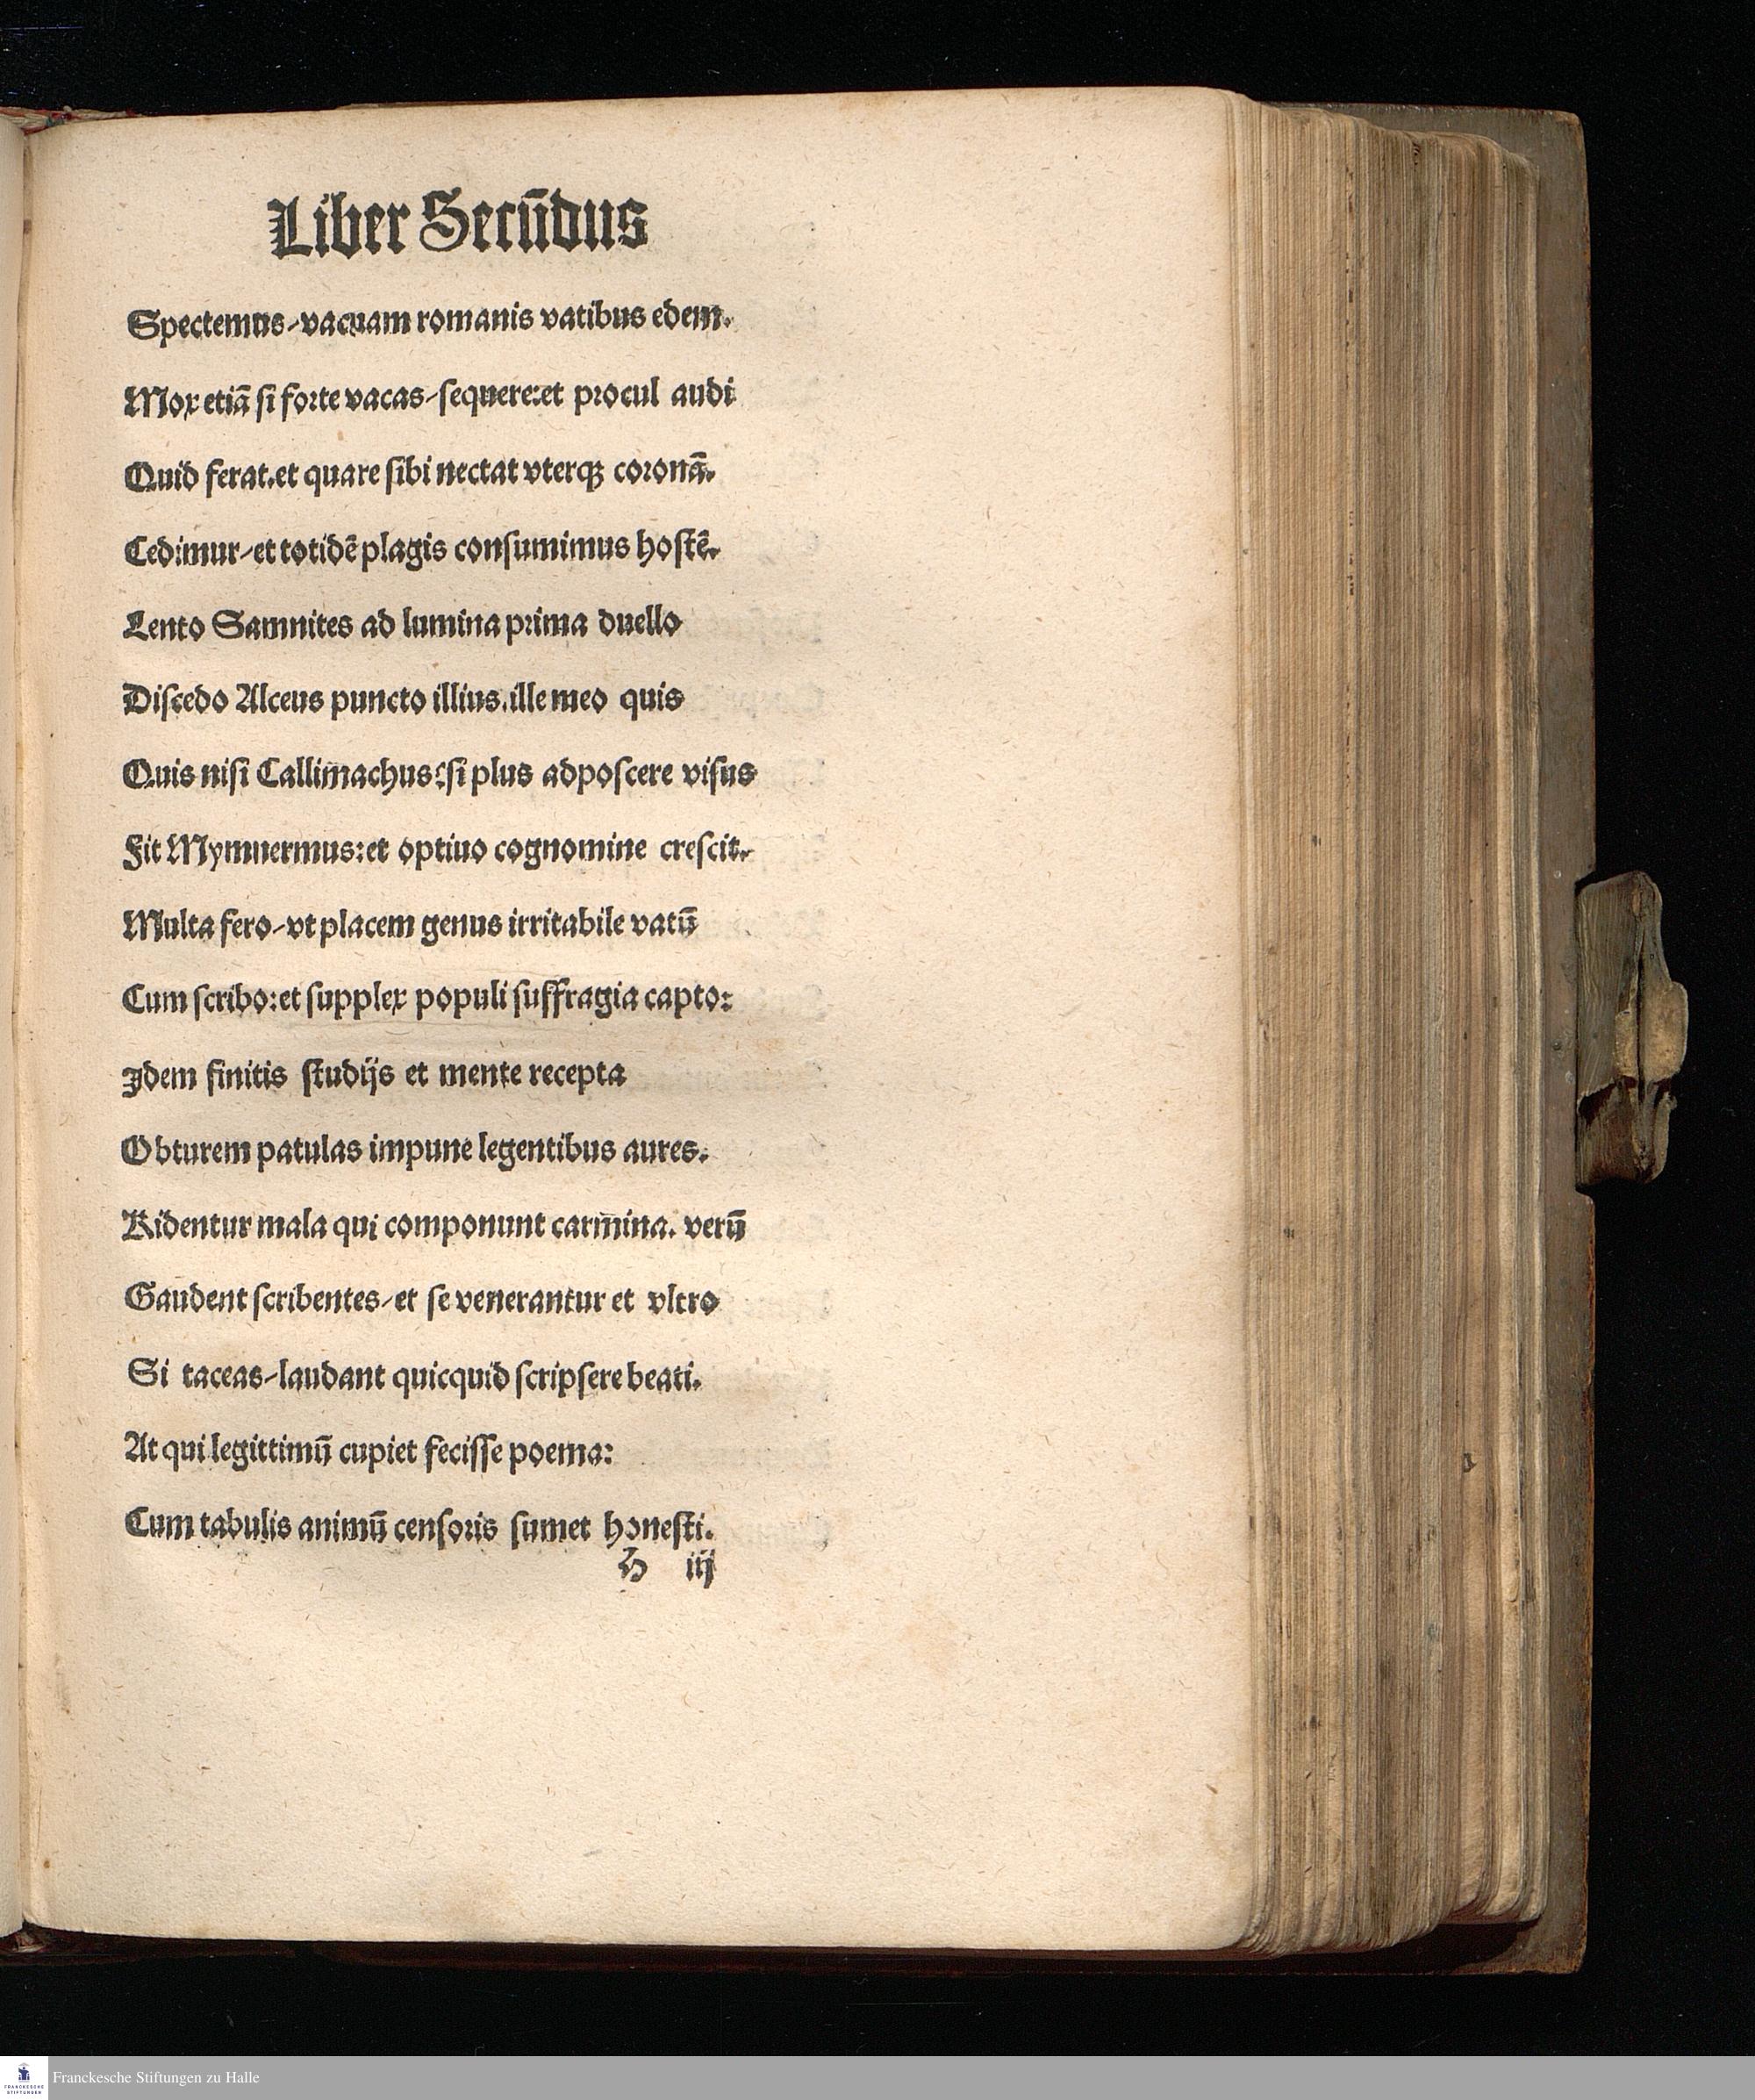 Liber Secūdus
Spectemus/vacuam romanis vatibus edem.
Mox etiā si forte vacas/sequere:et procul audi
Quid ferat.et quare sibi nectat vterqꝫ coronā.
Cedimur/et totidē plagis consumimus hostē.
Lento Samnites ad lumina prima duello
Discedo Alceus puncto illius.ille meo quis
Quis nisi Callimachus:si plus adposcere visus
Fit Mymnermus:et optiuo cognomine crescit.
Multa fero/vt placem genus irritabile vatū
Cum scribo:et supplex populi suffragia capto:
Idem finitis studijs et mente recepta
Obturem patulas impune legentibus aures.
Ridentur mala qui componunt carmina. verū
Gaudent scribentes/et se venerantur et vltro
Si taceas/laudant quicquid scripsere beati.
At qui legittimū cupiet fecisse poema:
Cum tabulis animū censoris sumet honesti.
H iij
Franckesche Stiftungen zu Halle
FRANCKESCHE
STIFTUNGEN